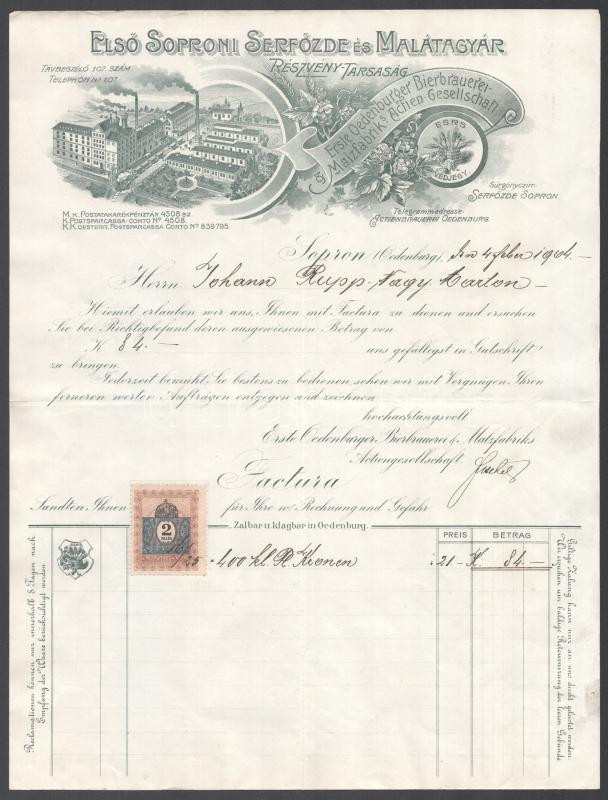 ELSŐ SOPRONI SERFŐZDE ÉS MALÁTAGYÁR
RÉSZVÉNY-TÁRSASÁG
TÁVBESZÉLŐ 107. SZÁM
TELEPHON Nº 107.
Erste Oedenburger Bierbrauerei-
& Malzfabriks Actien-Gesellschaft
ESRS
VÉDJEGY.
Sürgönyczím:
SERFŐZDE SOPRON.
Telegrammadresse:
ACTIENBRAUEREI OEDENBURG.
M. K. POSTATAKARÉKPÉNZTÁR 4508 SZ.
K. POSTSPARCASSA-CONTO Nº 4508.
K. K. OESTERR. POSTSPARCASSA CONTO Nº 839795.
Sopron (Oedenburg), den 4 1904.–
Herrn Johann Rupp-Nagy Marton –
Hiemit erlauben wir uns, Ihnen mit Factura zu dienen und ersuchen
Sie bei Richtigbefund deren ausgewiesenen Betrag von
K 84.– uns gefälligst in Gutschrift
zu bringen.
Jederzeit bemüht, Sie bestens zu bedienen sehen wir mit Vergnügen Ihren
ferneren werten Aufträgen entgegen und zeichnen
hochachtungsvoll
Erste Oedenburger Bierbrauerei & Malzfabriks
Actiengesellschaft
Factura
Sandten Ihnen für Ihre w. Rechnung und Gefahr
Zalbar u. klagbar in Oedenburg.
PREIS BETRAG
2
FILLÉR
400 kl. Kronen 21– K. 84.–
Reclamationen können nur innerhalb 8 Tagen nach
Empfang der Waare berücksichtigt werden.
Giltige Zalung kann nur an uns direkt geleistet werden.
Wir ersuchen um baldige Retournierung der leeren Gebünde